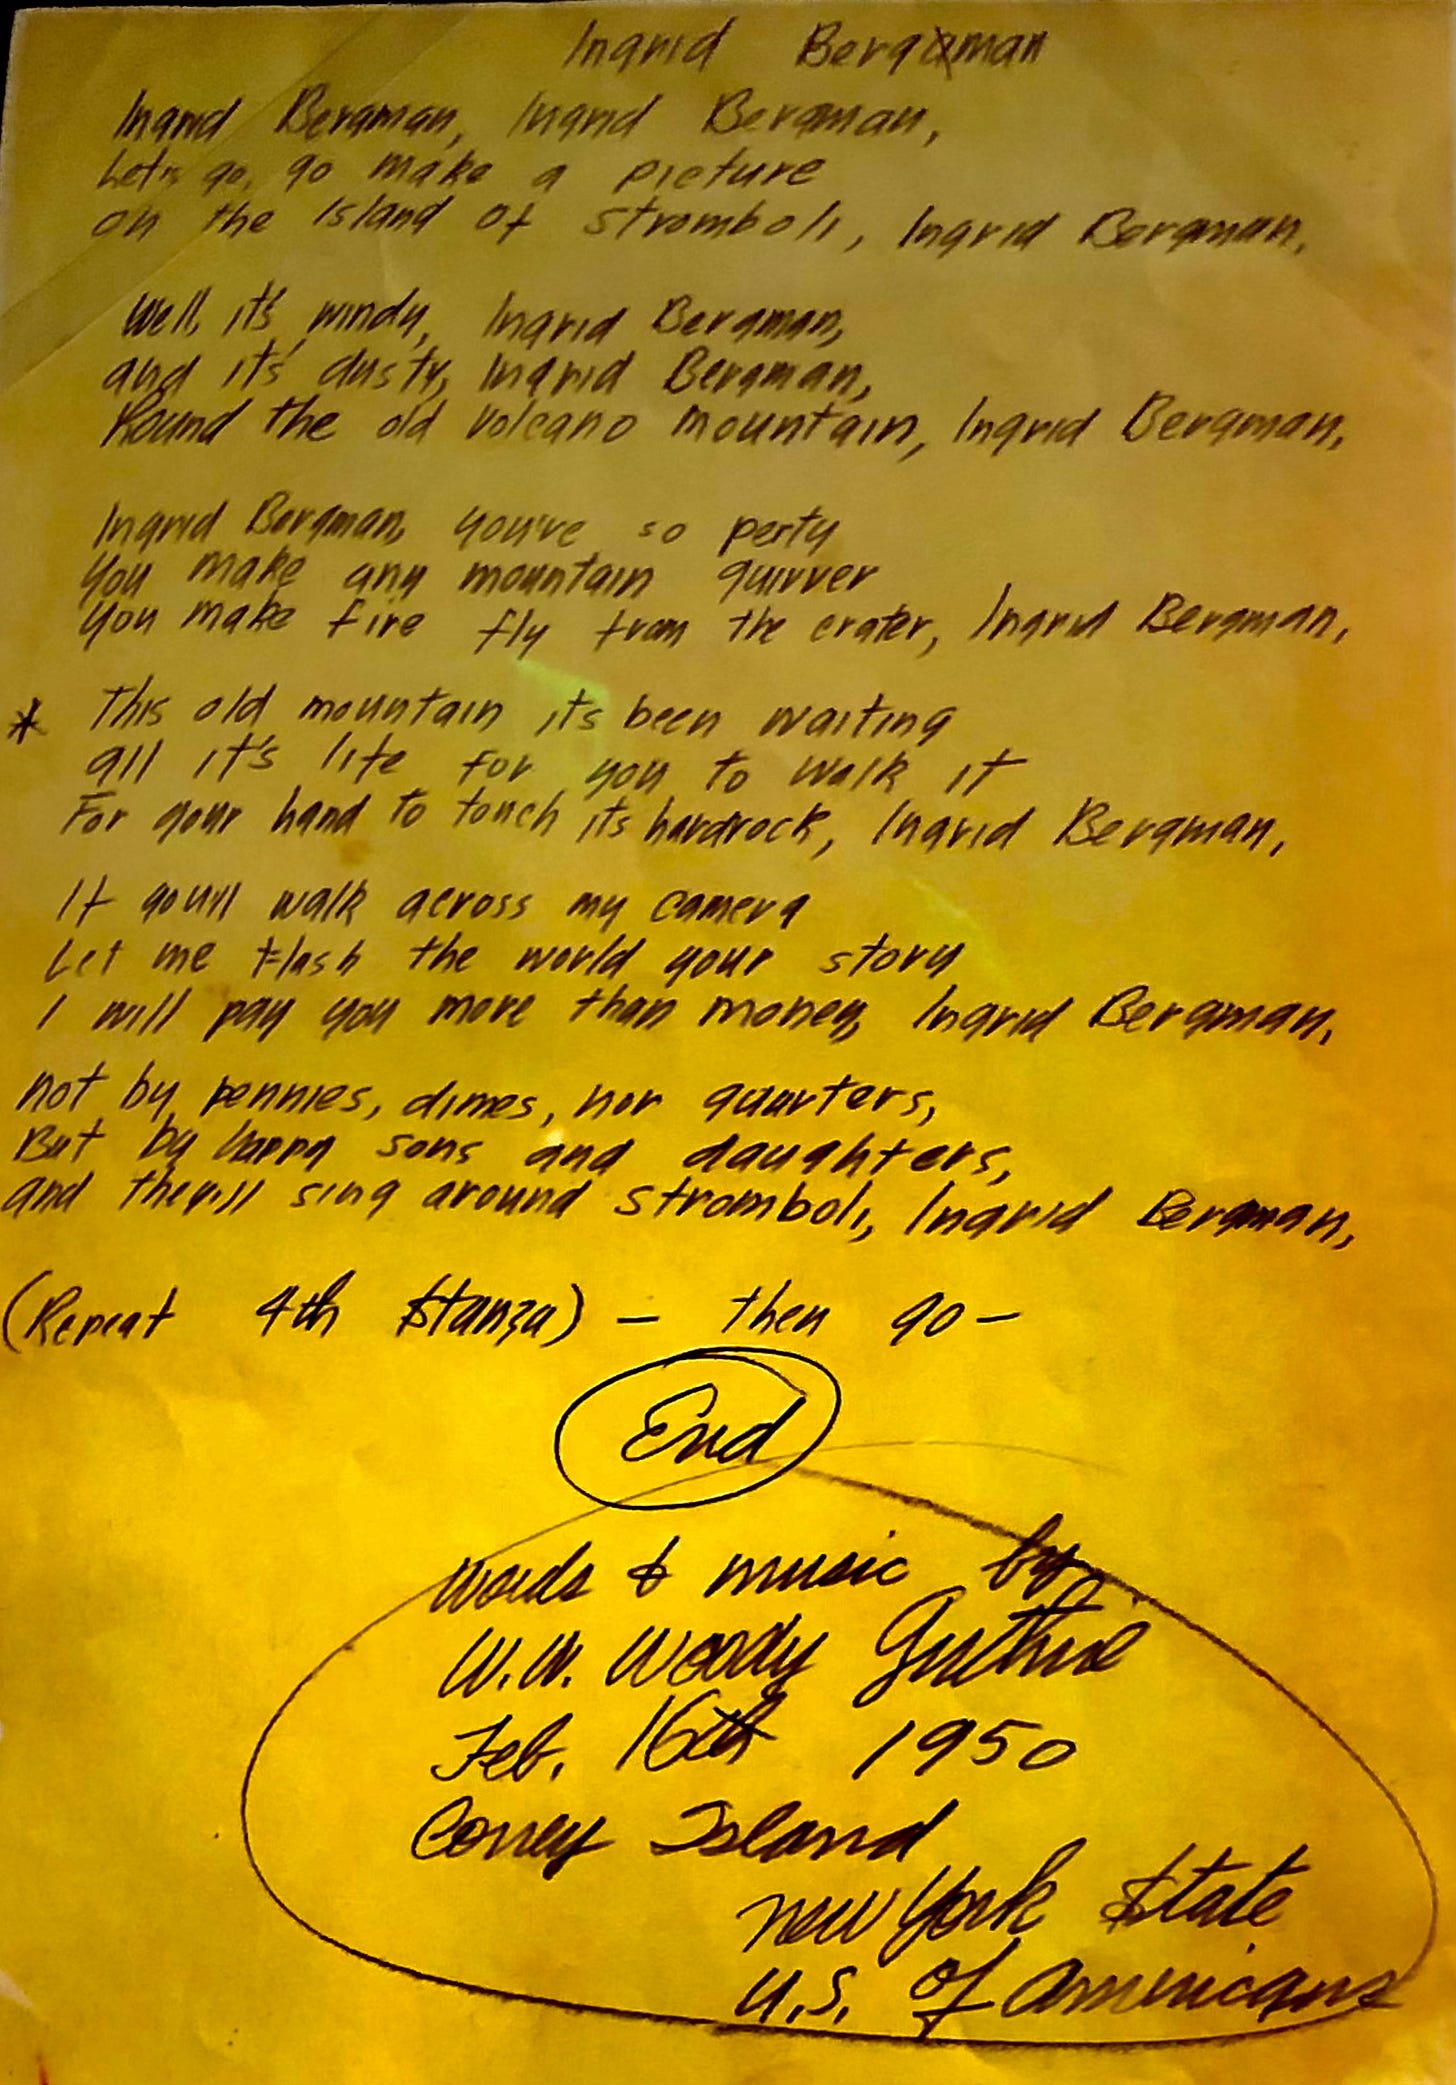 Ingrid Bergman
Ingrid Bergman, Ingrid Bergman,
Let's go, go make a picture
On the Island of Stromboli, Ingrid Bergman,
Well, it's windy, Ingrid Bergman,
and it's dusty, Ingrid Bergman,
Round the old volcano mountain, Ingrid Bergman,
Ingrid Bergman, you've so perty
You make any mountain quivver
You make fire fly from the crater, Ingrid Bergman,
* This old mountain its been waiting
all it's life for you to walk it
For your hand to touch its hardrock, Ingrid Bergman,
If you'll walk across my camera
Let me flash the world your story
I will pay you more than money, Ingrid Bergman,
Not by pennies, dimes, nor quarters,
But by happy sons and daughters,
and they'll sing around Stromboli, Ingrid Bergman,
(Repeat 4th Stanza) — then go —
End
Words & music by
W.W. Woody Guthrie
Feb. 16th 1950
Coney Island
New York State
U.S. of Americans